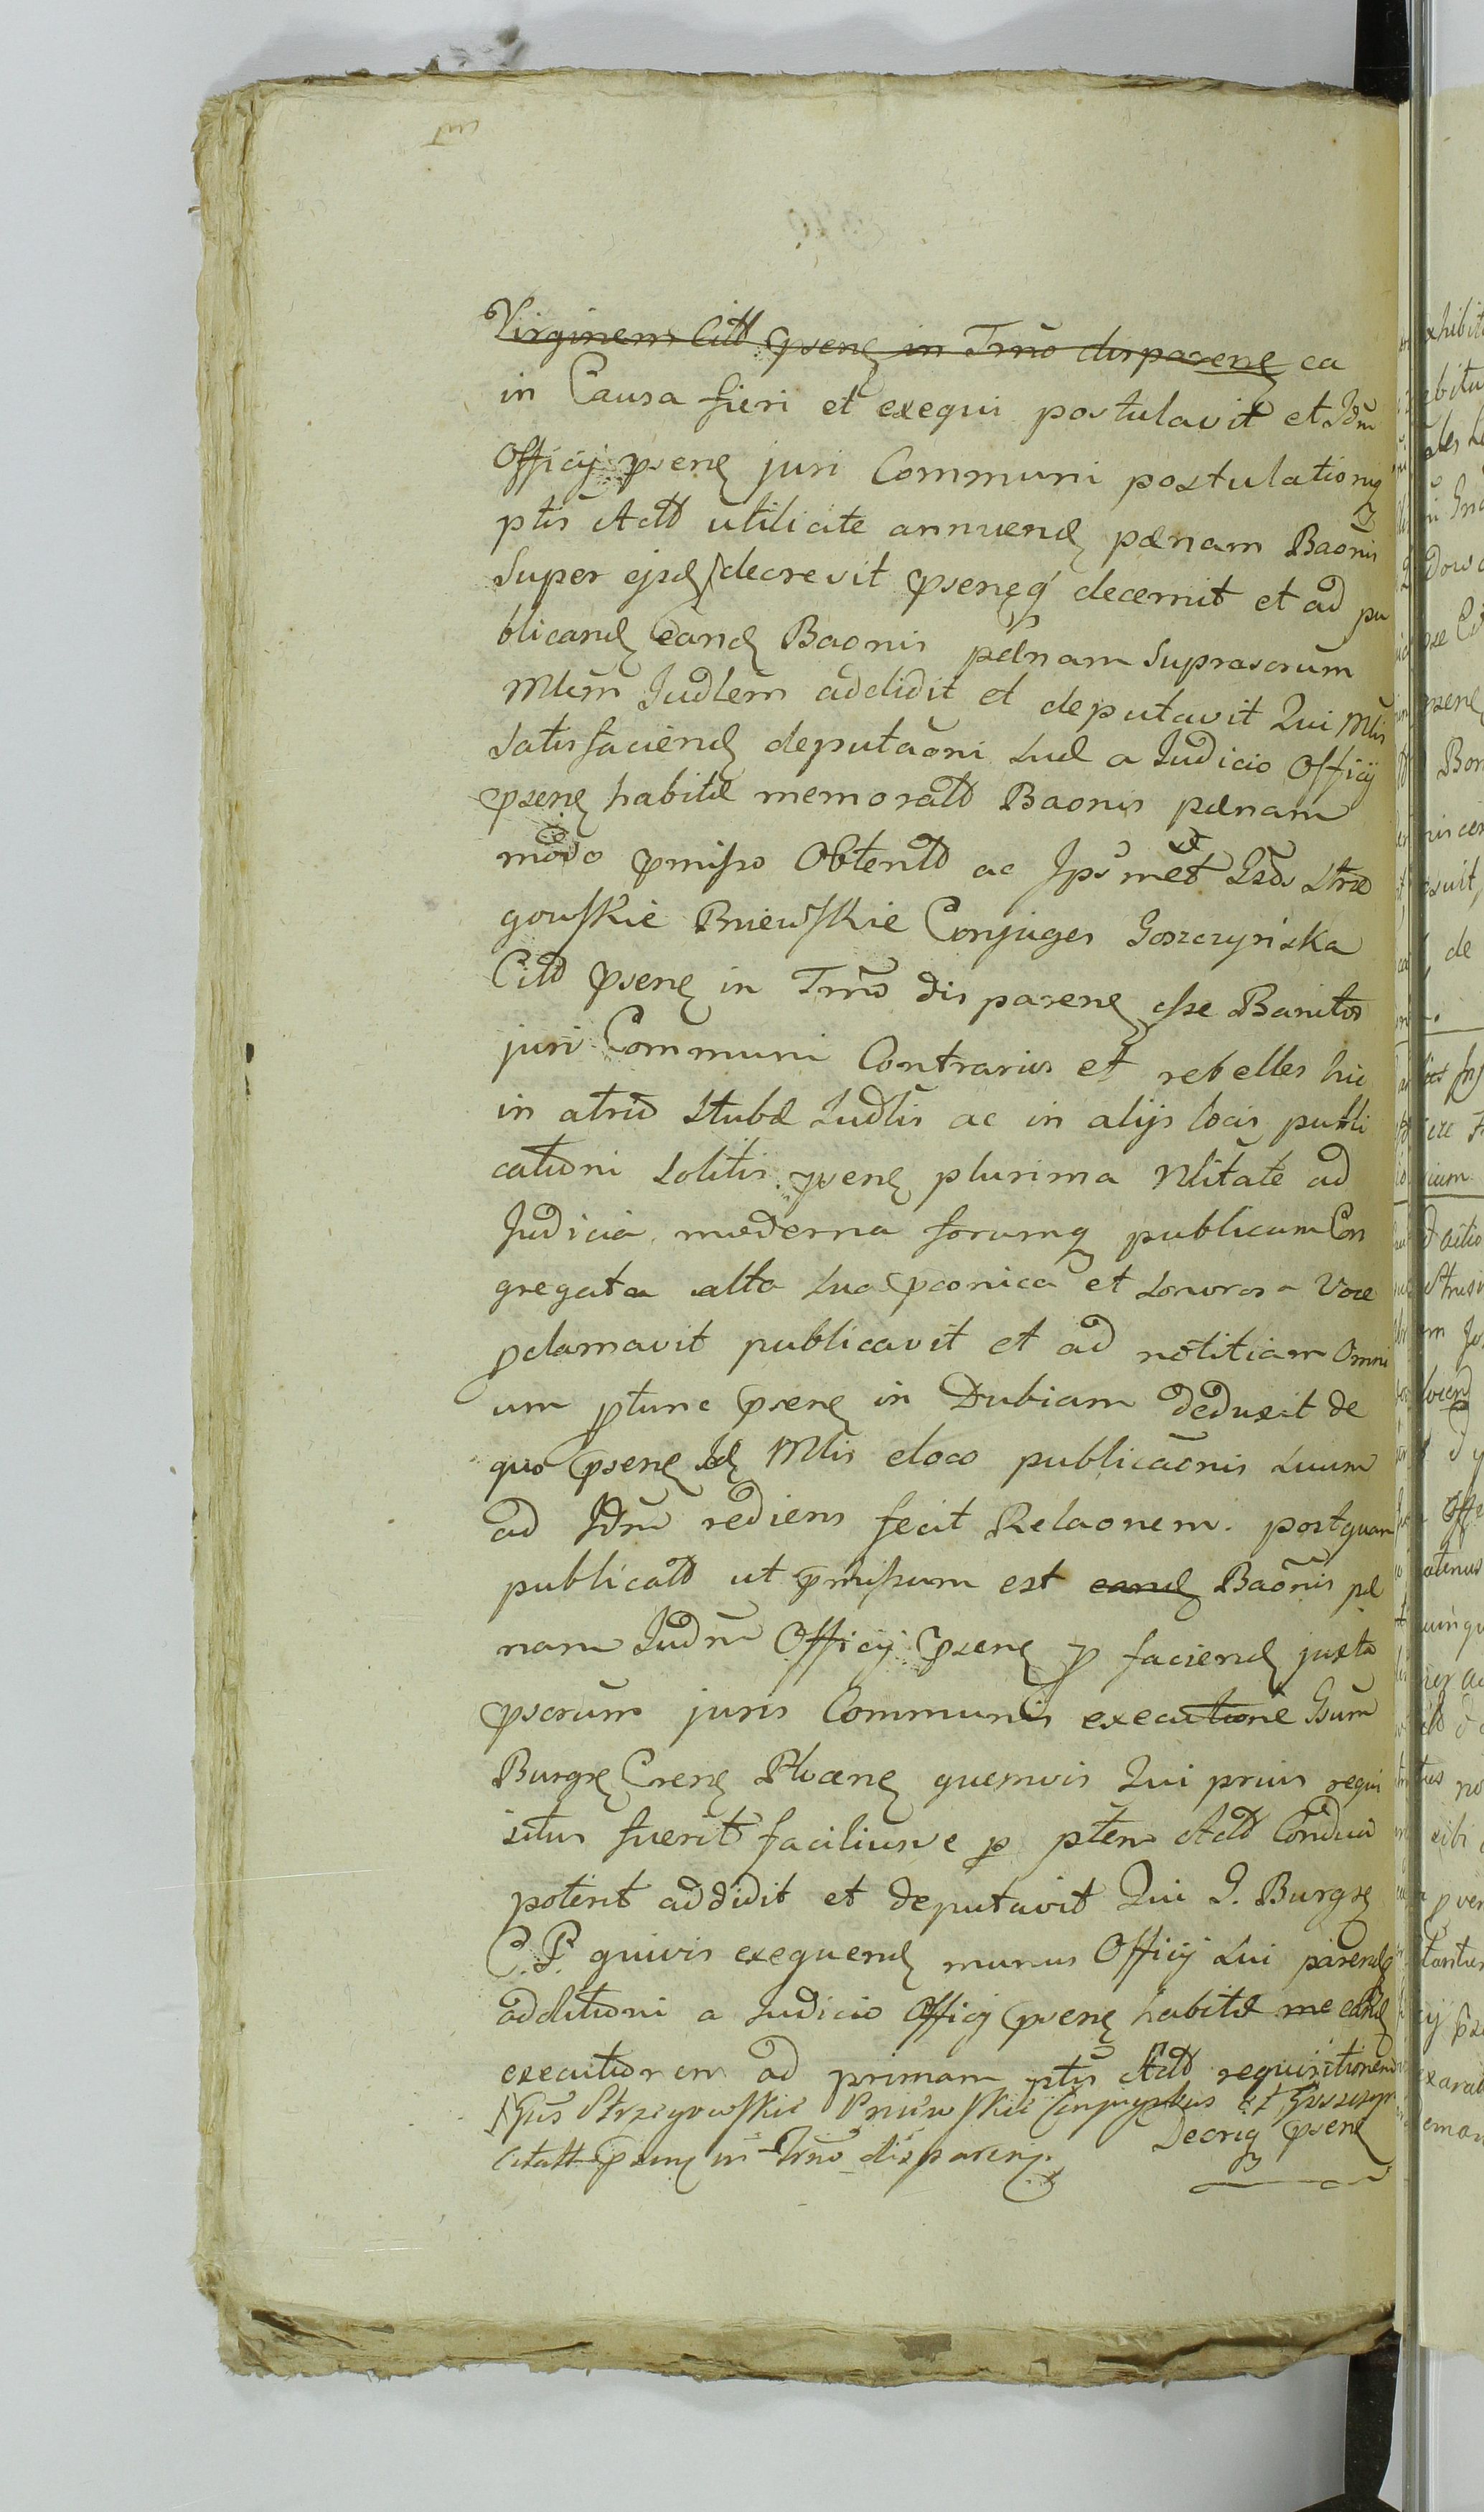 Virginem Citt psene in Trño disparene ea
in Causa fieri et exequi postulavit et Jdm
Officij psene juri Communi postulationiq
ptis Actt utilicite annuend pænam Baõnis
Super ejsd decrevit pseneq decernit et ad pu
blicand eand Baonis pænam Suprascrum
Mlem Judlem addidit et deputavit Qui Mlis
Satisfaciend deputaõni Suæ a Judicio Officij
psene habitæ memoratt Baonis pænam
modo pmisso Obtentt ac Ipsmet Gsos Strze
gowskie Pniewskie Conjuges Goszczyńska
Citt psene in Trño disparene esse Banitos
juri Communi Contrarios et rebelles hic
in atrio Stubæ Judlis ac in alijs locis publi
cationi Solitis psene plurima Nlitate ad
Judicia moderna forumq publicum Con
gregata alta Sua pconica et Sonorosa Voce
pclamavit publicavit et ad notitiam Omni
um ptunc psene in Dubiam deduxit de
quo psene Id Mlis eloco publicaõnis Suum
ad Jdm rediens fecit Relaonem. postquam
publicatt ut pmissum est eand Baõnis pæ
nam Judm Officij psene p faciend juxta
pscrum juris Communis executione Gsum
Burgre Crene Plocene quemvis Qui prius requi
situs fuerit faciliusve p ptem Actt Conduci
poterit addidit et deputavit Qui G. Burgre
C. P. quivis exequend munus Officij Sui parendq
additioni a Judicio Officij psene habitæ me eand
executionem ad primam ptis Actt requisitionem
Gsis Strzegowskie Pniewskie Conjugibus et Goszczyn
citatt psene in Trño disparene. Decrq psene